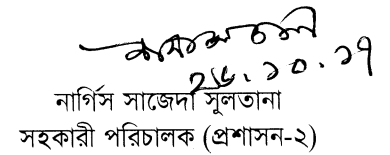 ২৬.১০.১৭
নার্গিস সাজেদা সুলতানা
সহকারী পরিচালক (প্রশাসন-২)